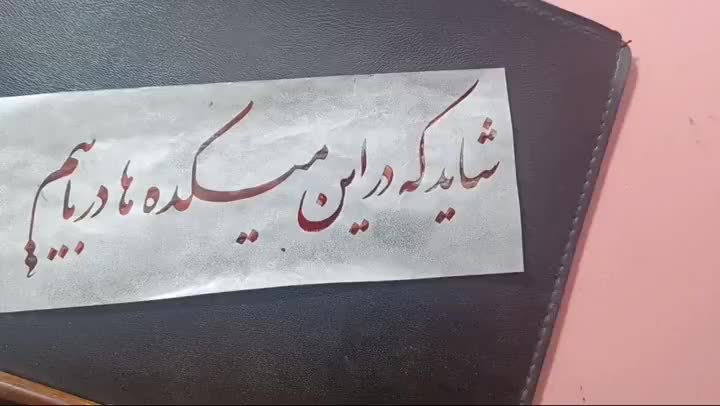 شاید که در این میکده ها دریابیم